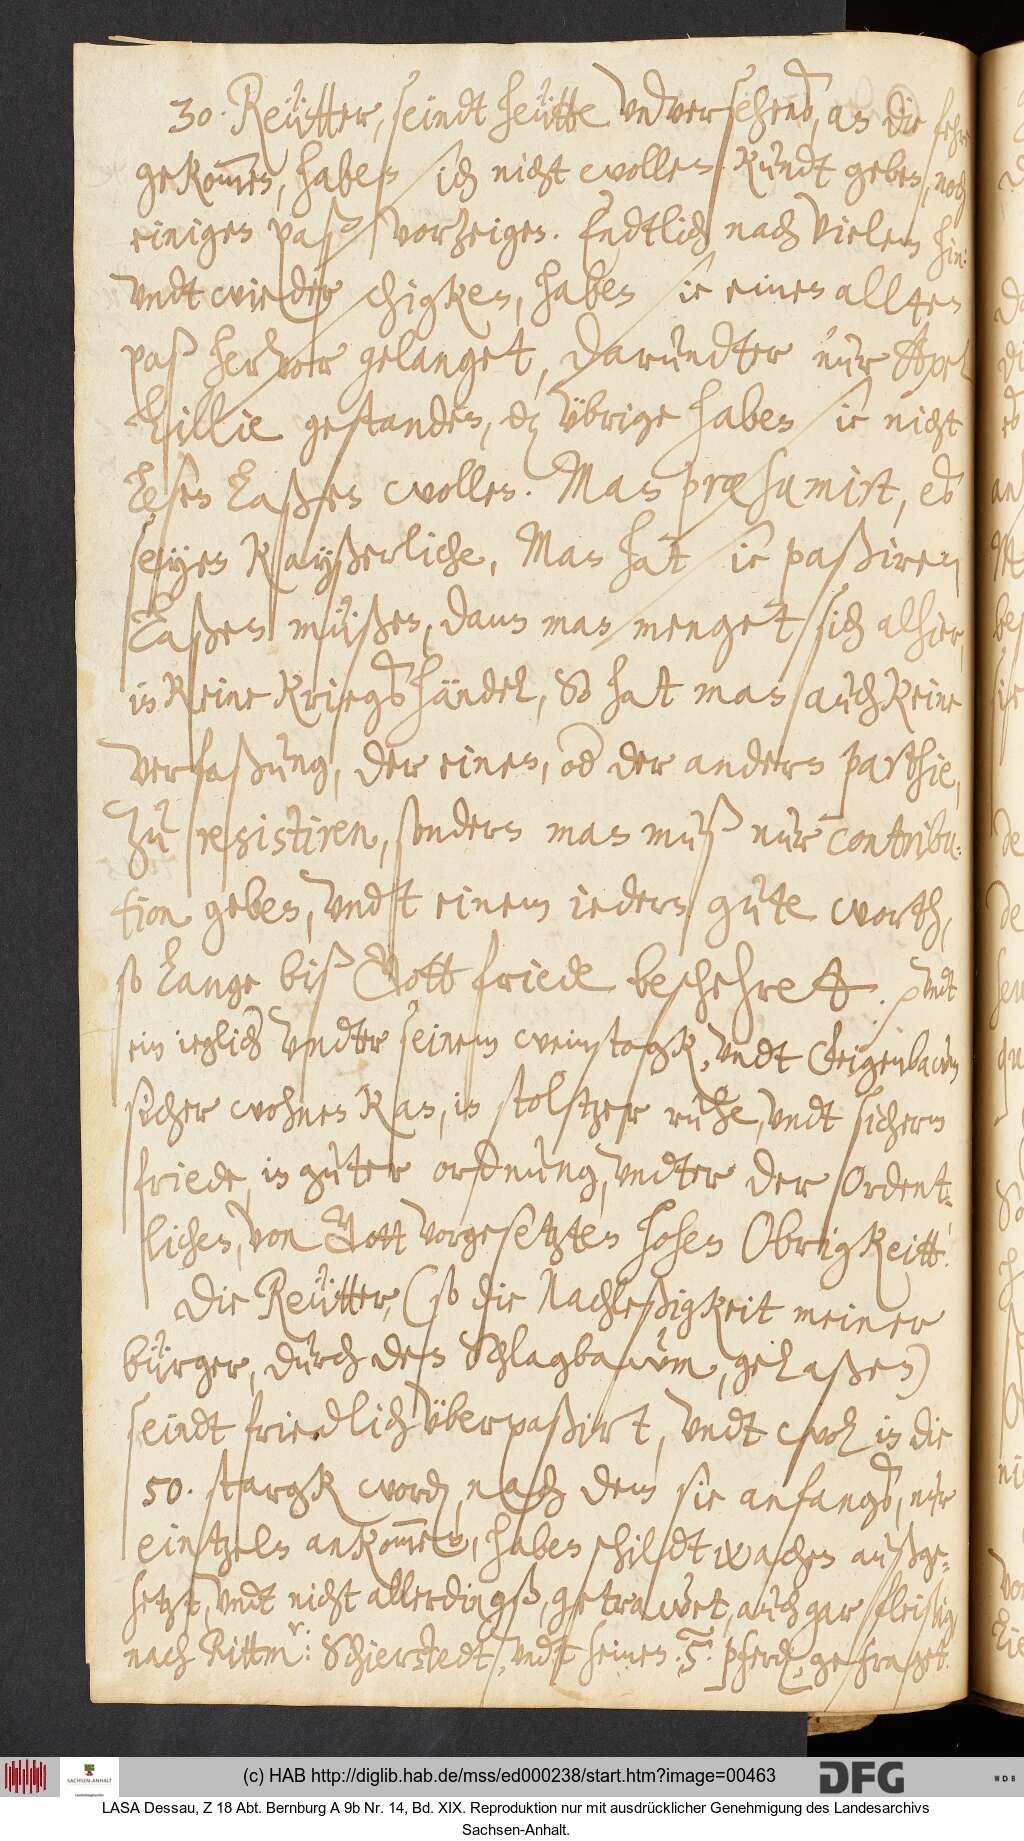 30. Reütter, seindt heütte vndversehends, an die fehre
gekom̅en, haben sich nicht wollen kundt geben, noch
einigen paß vorzeigen. Endtlich nach vielem hin:
vndt wieder schigken, haben sie einen allten
paß herfvor gelanget, darundter nur Apel
Lillie gestanden, dz übrige haben sie nicht
lesen laßen wollen. Man præsumirt, es
seyen Kayßerliche, Man hat sie paßiren
laßen müßen, dann man menget sich alhier,
in keine kriegshändel, So hat man auch keine
verfaßung, der einen, od der andern parthie,
zu resistiren, sondern man muß nur contribu:
tion geben, vndt einem iedern gute worth,
so lange biß Gott friede beschehret. Vndt
ein ieglicher vndter seinem weinstogk, vndt feigenbawm
sicher wohnen kan, in stoltzer ruhe, vndt sicherm
friede, in guter ordnung, vndter der Ordent:
lichen, von Gott vorgesetzten hohen Obrigkeitt.
Die Reütter, (so die Nachleßigkeit meiner
bürger, durch den Schlagbawm, gelaßen)
seindt friedlich überpaßirt, vndt wol in die
50. stargk word, nach dem sie anfangs, nur
eintzeln ankom̅en, haben schildtwachen außge:
setzt, vndt nicht allerdingß, getrawet, auch gar fleißig,
nach Rittmr: Schierstedt, vndt seinen .5. pferden, gefraget.
(c) HAB http://diglib.hab.de/mss/ed000238/start.htm?image=00463
SACHSEN-ANHALT
DFG
WDB
LASA Dessau, Z 18 Abt. Bernburg A 9b Nr. 14, Bd. XIX. Reproduktion nur mit ausdrücklicher Genehmigung des Landesarchivs
Sachsen-Anhalt.